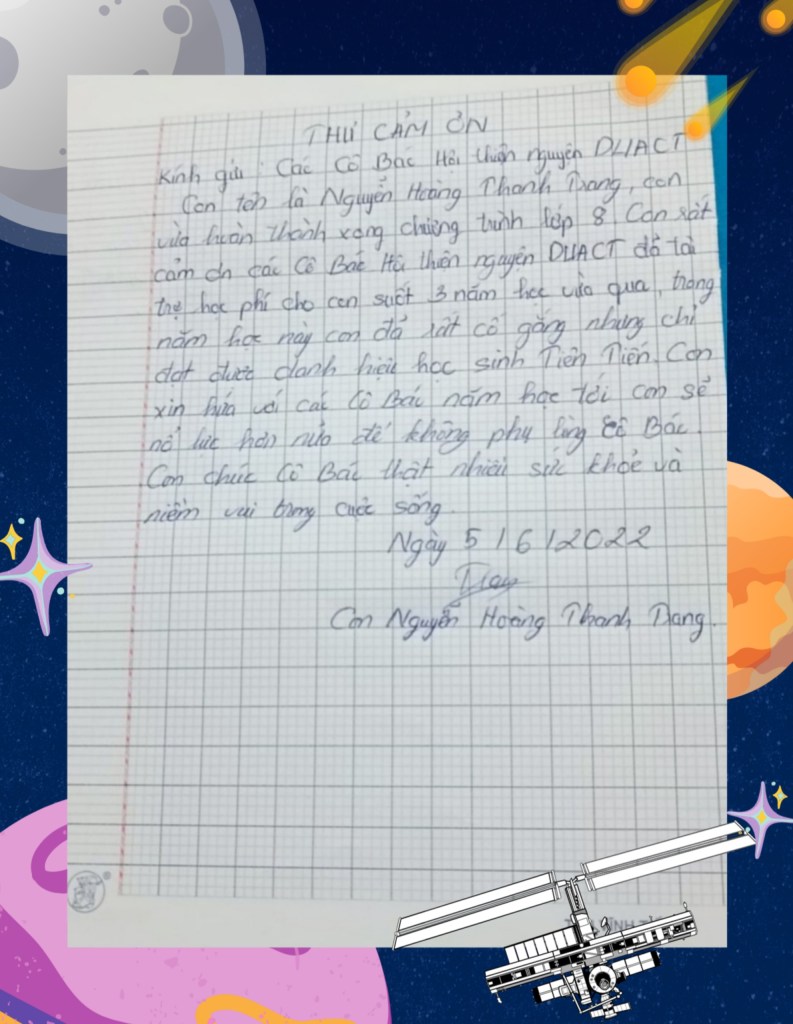 THƯ CẢM ƠN
Kính gửi : Các Cô Bác Hội thiện nguyện DUACT
Con tên là Nguyễn Hoàng Thanh Trang, con
vừa hoàn thành xong chương trình lớp 8. Con rất
cảm ơn các Cô Bác Hội thiện nguyện DUACT đã tài
trợ học phí cho con suốt 3 năm học vừa qua, trong
năm học này con đã rất cố gắng nhưng chỉ
đạt được danh hiệu học sinh Tiên Tiến. Con
xin hứa với các Cô Bác năm học tới con sẽ
nổ lực hơn nữa để không phụ lòng Cô Bác.
Con chúc Cô Bác thật nhiều sức khoẻ và
niềm vui trong cuộc sống.
Ngày 5/6/2022
Con Nguyễn Hoàng Thanh Trang.